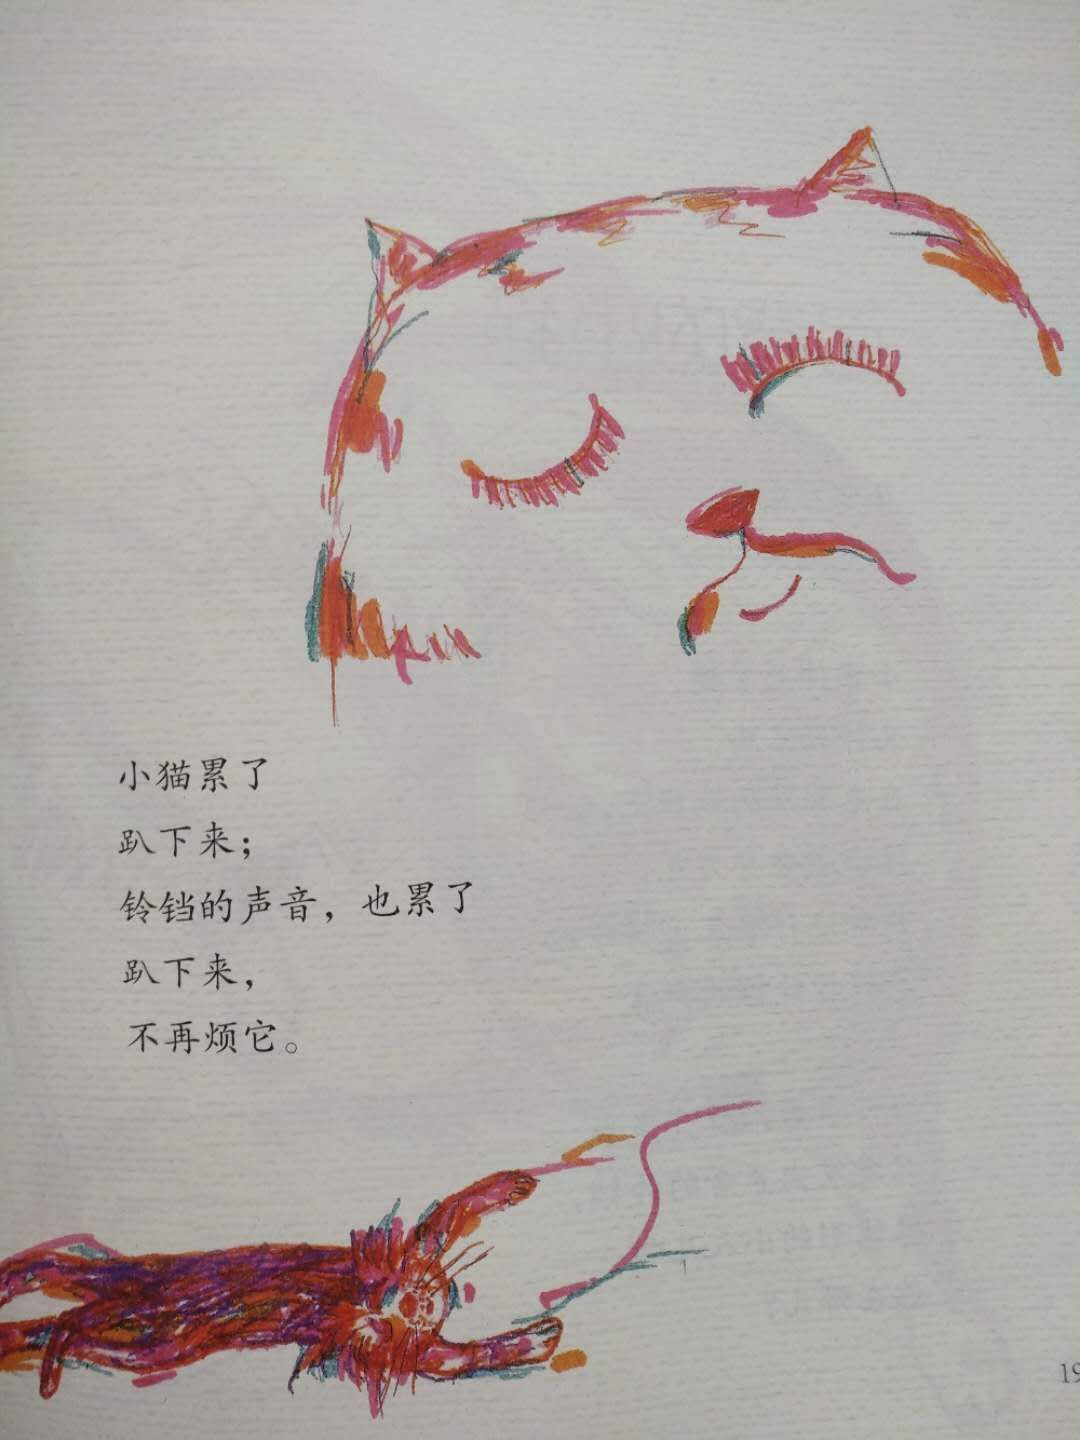 小猫累了
趴下来；
铃铛的声音，也累了
趴下来，
不再烦它。
19